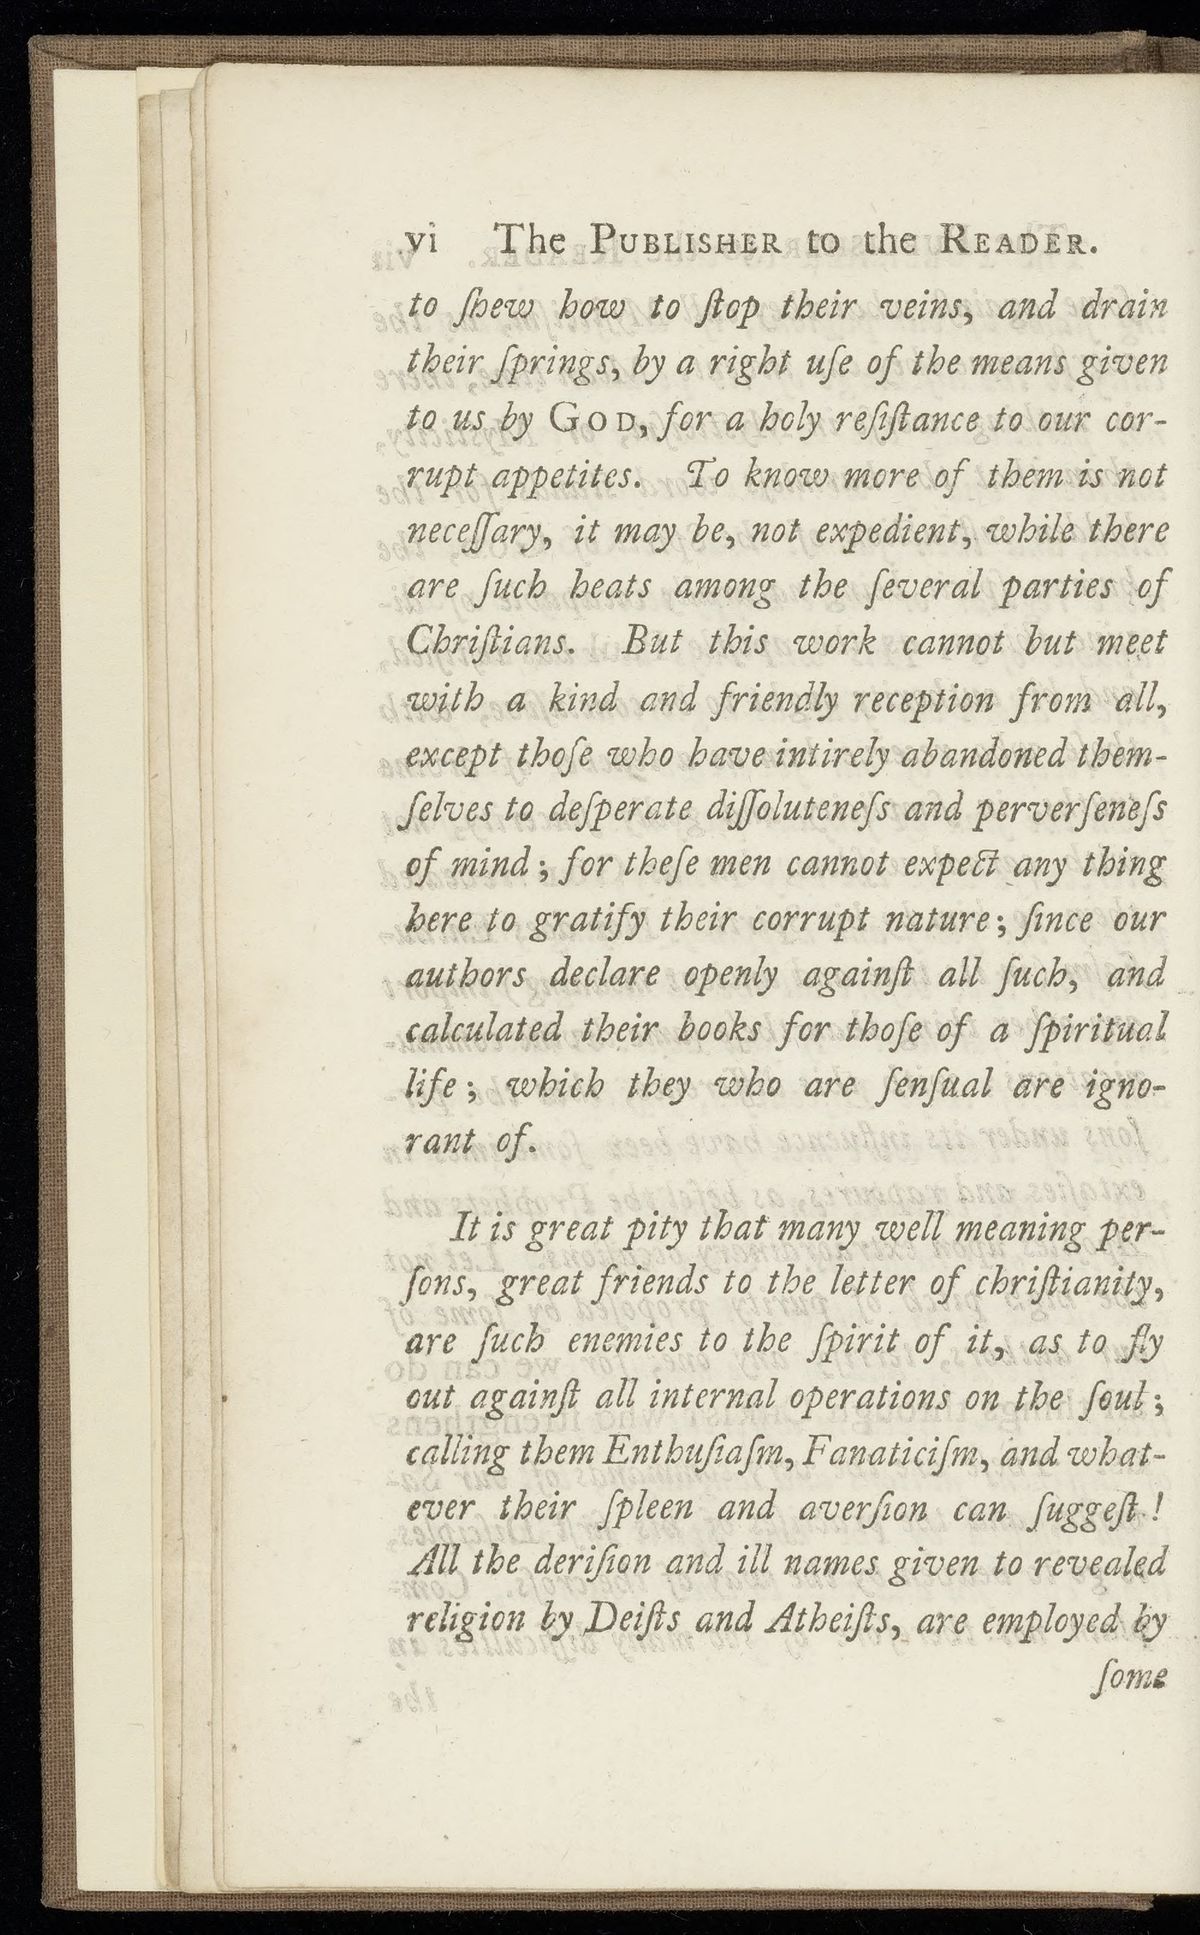 vi The PUBLISHER to the READER.
to ſhew how to ſtop their veins, and drain
their ſprings, by a right uſe of the means given
to us by GOD, for a holy reſiſtance to our cor-
rupt appetites. To know more of them is not
neceſſary, it may be, not expedient, while there
are ſuch heats among the ſeveral parties of
Chriſtians. But this work cannot but meet
with a kind and friendly reception from all,
except thoſe who have intirely abandoned them-
ſelves to deſperate diſſoluteneſs and perverſeneſs
of mind; for theſe men cannot expect any thing
here to gratify their corrupt nature; ſince our
authors declare openly againſt all ſuch, and
calculated their books for thoſe of a ſpiritual
life; which they who are ſenſual are igno-
rant of.
It is great pity that many well meaning per-
ſons, great friends to the letter of chriſtianity,
are ſuch enemies to the ſpirit of it, as to fly
out againſt all internal operations on the ſoul;
calling them Enthuſiaſm, Fanaticiſm, and what-
ever their ſpleen and averſion can ſuggeſt!
All the deriſion and ill names given to revealed
religion by Deiſts and Atheiſts, are employed by
ſome